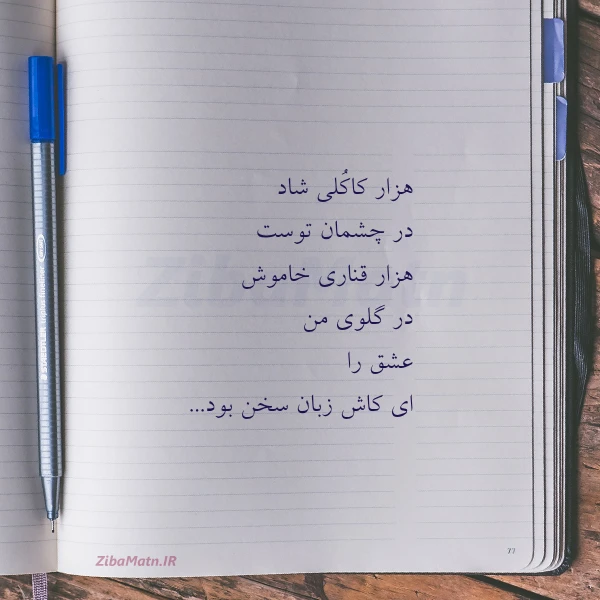 هزار کاکُلی شاد
در چشمان توست
هزار قناری خاموش
در گلوی من
عشق را
ای کاش زبان سخن بود...
ZibaMatn
ZibaMatn.IR